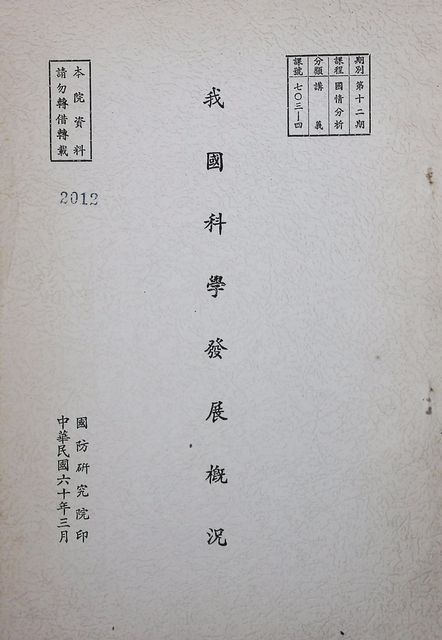 期別 第十二期
課程 國情分析
分類 講義
課號 七〇三—四
我國科學發展概況
本院資料
請勿轉借轉載
2012
國防研究院印
中華民國六十年三月